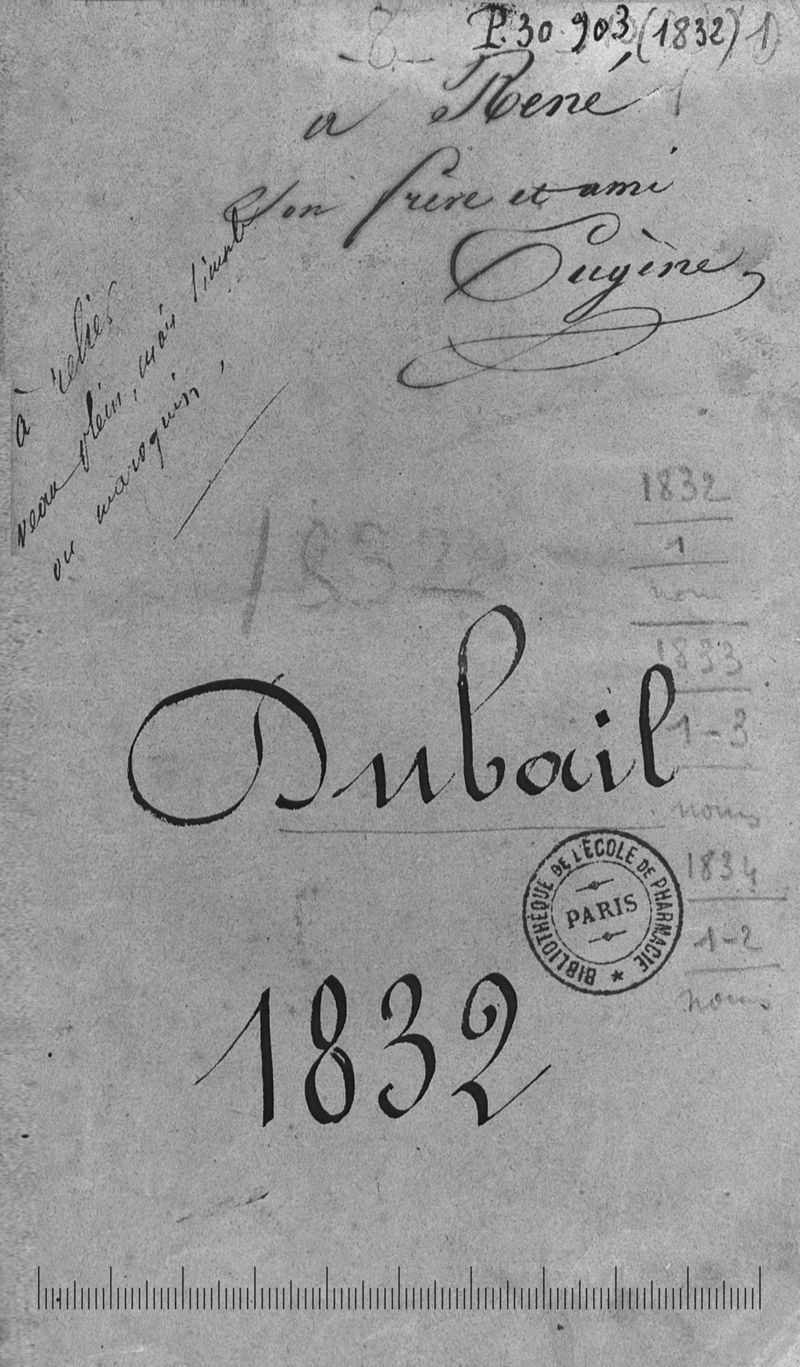 P. 30 903 (1832) 1
a René
Son frère et ami
Eugène
à relier
veau plein, mais
ou maroquin,
1832
1
nom
1833
1-3
noms
1834
1-2
noms
1832
Dubail
BIBLIOTHÈQUE DE L'ÉCOLE DE PHARMACIE
PARIS
1832